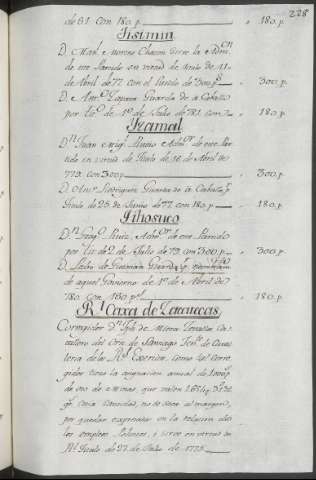 228
de 81 con 180. p. " 180. p.
Tisimin
D. Man.l Moreno Chacon tiene la Adm.on
de este Partido en virtud de titulo de 11
de Abril de 77 con el sueldo de 300 p.s " 300. p.
D. Ant.o Guarda de a Caballo
por tit.o de 1.o de Julio de 781 con " 180. p.
Izamal
D.n Juan Rubio Adm.or de este Par-
tido en virtud de titulo de 16 de Abril de
779. con 300 p. " 300. p.
D. Rodriguez Guarda de a Caballo p.r
titulo de 25 de Junio de 77. con 180. p. " 180. p.
Tihosuco
D.n Ruiz, Adm.or de este Partido
por tit. de 2 de Julio de 79. con 300. p. " 300. p.
D. Pedro de Guzman Guarda
de aquel Govierno de 1.o de Abril de
780. con 180 p.s " 180. p.
R.l Caxa de Zacatecas
Corregidor D.n de Ca-
vallero del Orn. de Santiago de Cava-
lleria de los R.s Exercitos, como tal Corre-
gidor tiene la asignacion annual de
de oro de Minas, que valen
cuia cantidad, no se saca al margen,
por quedar expresada en la relacion de
los empleos Politicos, i sirve en virtud de
R.l titulo de 27. de Julio de 1778.